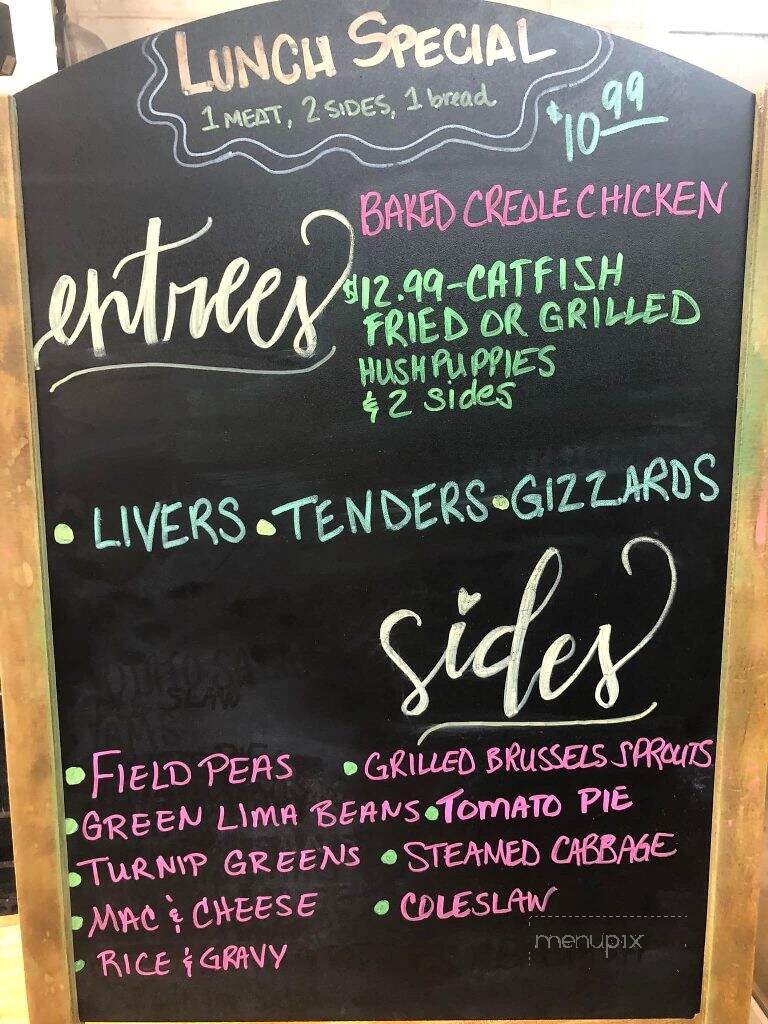 LUNCH SPECIAL
1 MEAT, 2 SIDES, 1 bread
$10 99
entrees
BAKED CREOLE CHICKEN
$12.99-CATFISH
FRIED OR GRILLED
HUSHPUPPIES
& 2 sides
• LIVERS • TENDERS • GIZZARDS
sides
• FIELD PEAS • GRILLED BRUSSELS SPROUTS
• GREEN LIMA BEANS • TOMATO PIE
• TURNIP GREENS • STEAMED CABBAGE
• MAC & CHEESE • COLESLAW
• RICE & GRAVY
menupix
SLAW